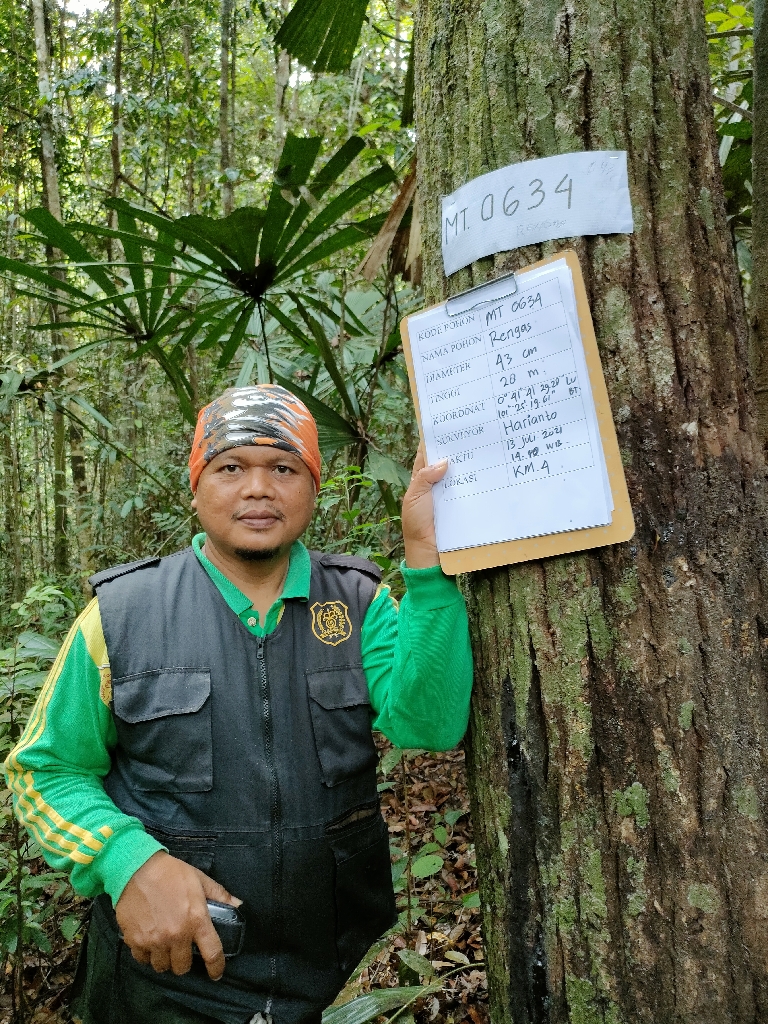 MT. 0634
KODE POHON MT 0634
NAMA POHON Rengas
DIAMETER 43 cm
TINGGI 20 m
KOORDINAT 0° 41' 41 29.20" LU
101° 25' 19.61" BT
SURVEYOR Harianto
WAKTU 13 JULI 2021
14. WIB
LOKASI KM 4